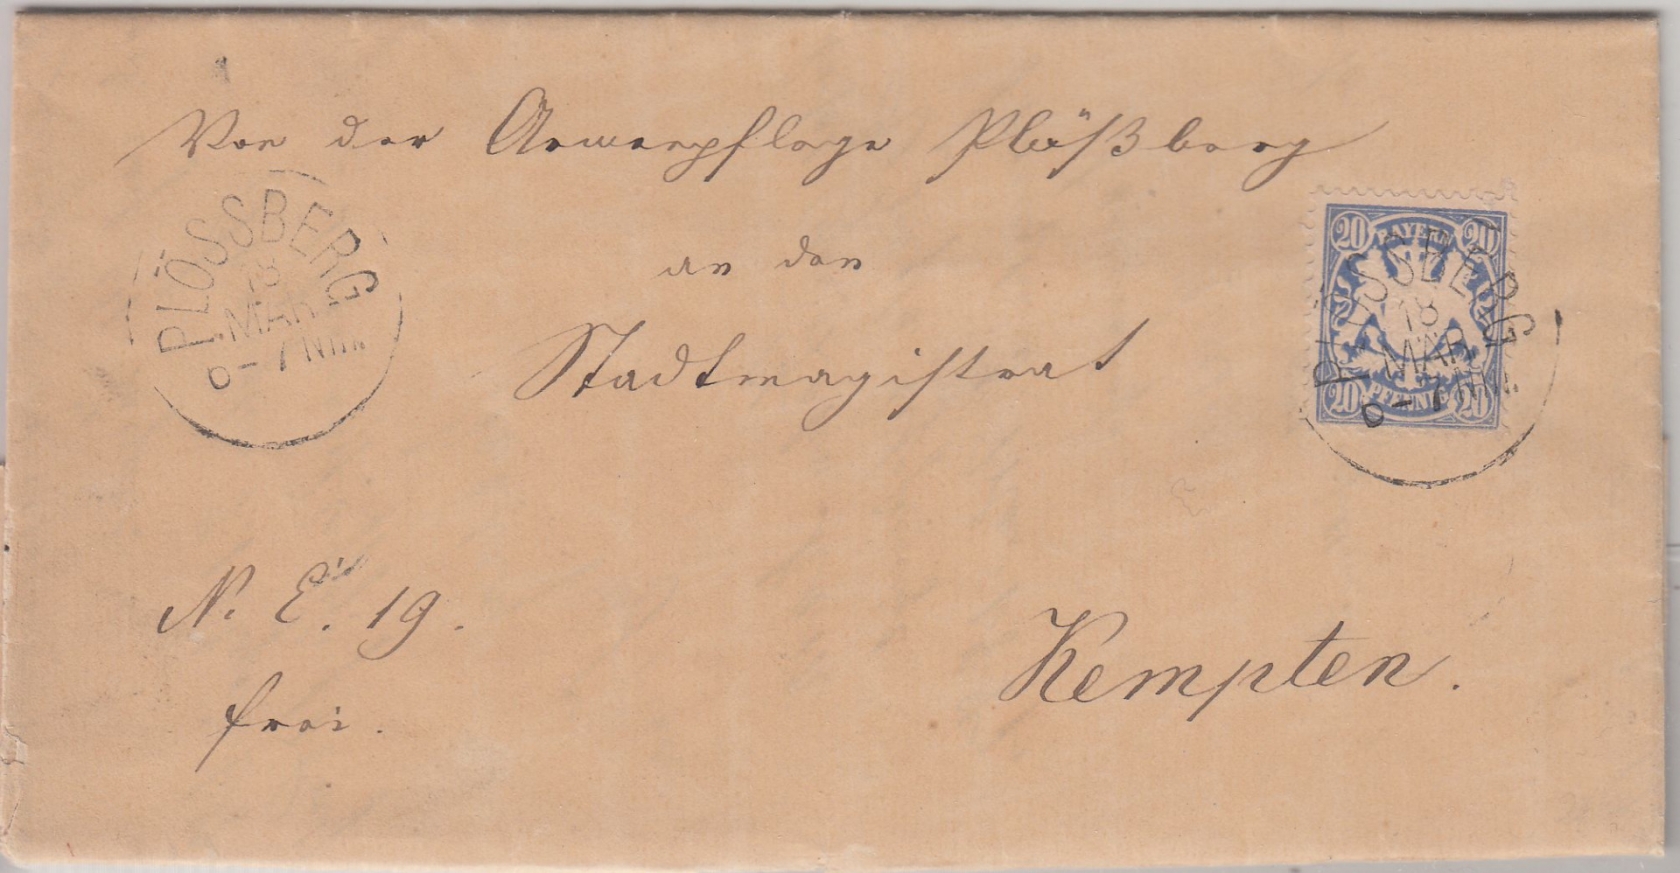 Von der Armenpflege Plößberg
PLÖSSBERG
18
MÄR
6-7 Nm.
an den
Stadtmagistrat
20 BAYERN 20
PLÖSSBERG
18
MÄR
6-7 Nm.
20 PFENNIG 20
N. E. 19.
frei.
Kempten.